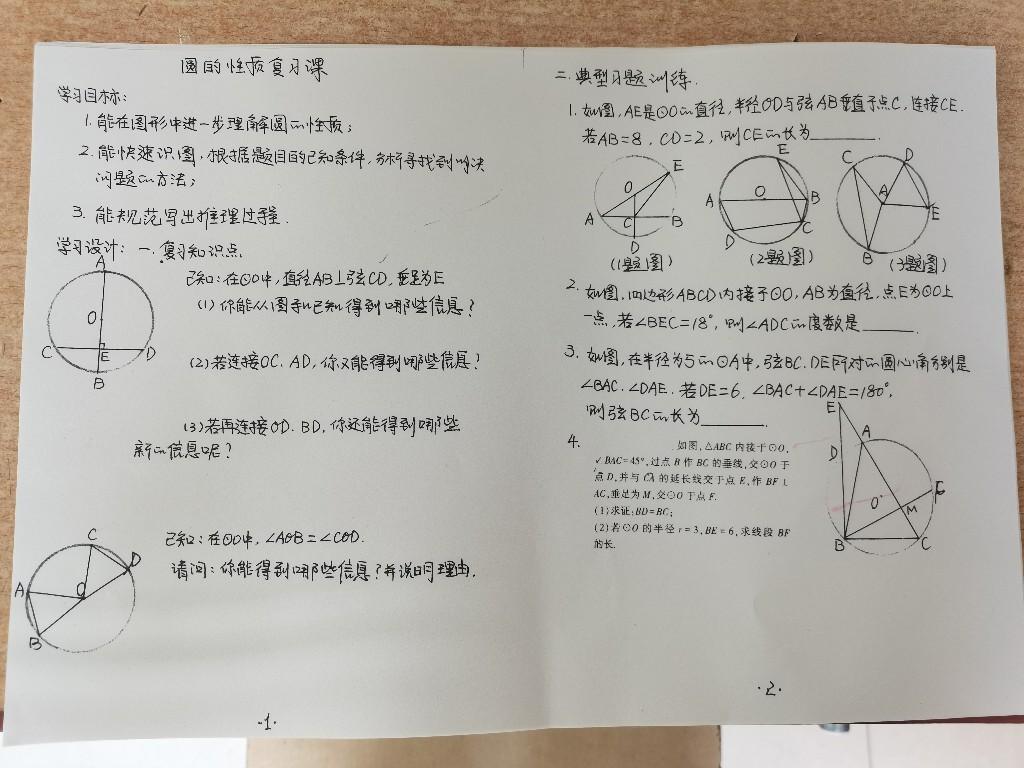 圆的性质复习课
学习目标:
1.能在图形中进一步理解圆的性质;
2.能快速识图,根据题目的已知条件,分析寻找到解决
问题的方法;
3.能规范写出推理过程.
学习设计: 一.复习知识点
A
O
C E D
B
已知:在⊙O中,直径AB⊥弦CD,垂足为E
(1)你能从图形和已知得到哪些信息?
(2)若连接OC、AD,你又能得到哪些信息?
(3)若再连接OD、BD,你还能得到哪些
新的信息呢?
C
D
A
O
B
已知:在⊙O中,∠AOB=∠COD.
请问:你能得到哪些信息?并说明理由.
·1·
二.典型习题训练.
1.如图,AE是⊙O的直径,半径OD与弦AB垂直于点C,连接CE.
若AB=8,CD=2,则CE的长为______.
E
O
A C B
D
(1题图)
E
A O B
D C
(2题图)
C D
A
E
B
(3题图)
2.如图,四边形ABCD内接于⊙O,AB为直径,点E为⊙O上
一点,若∠BEC=18°,则∠ADC的度数是______.
3.如图,在半径为5的⊙A中,弦BC、DE所对的圆心角分别是
∠BAC、∠DAE.若DE=6,∠BAC+∠DAE=180°,
则弦BC的长为______.
4.
如图,△ABC内接于⊙O,
∠BAC=45°,过点B作BC的垂线,交⊙O于
点D,并与CA的延长线交于点E,作BF⊥
AC,垂足为M,交⊙O于点F.
(1)求证:BD=BC;
(2)若⊙O的半径r=3,BE=6,求线段BF
的长.
E
A
D
F
O
M
B C
·2·